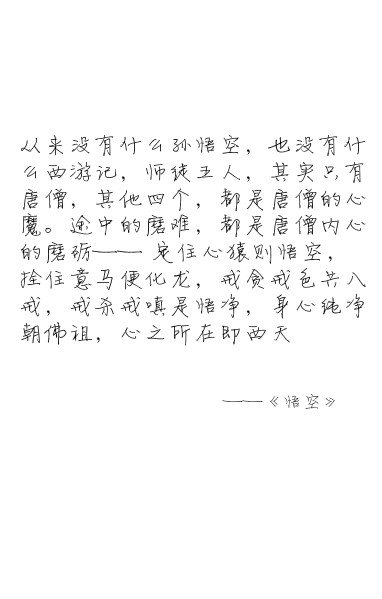 从来没有什么孙悟空，也没有什
么西游记，师徒五人，其实只有
唐僧，其他四个，都是唐僧的心
魔。途中的磨难，都是唐僧内心
的磨砺——定住心猿则悟空，
拴住意马便化龙，戒贪戒色共八
戒，戒杀戒嗔是悟净，身心纯净
朝佛祖，心之所在即西天
——《悟空》